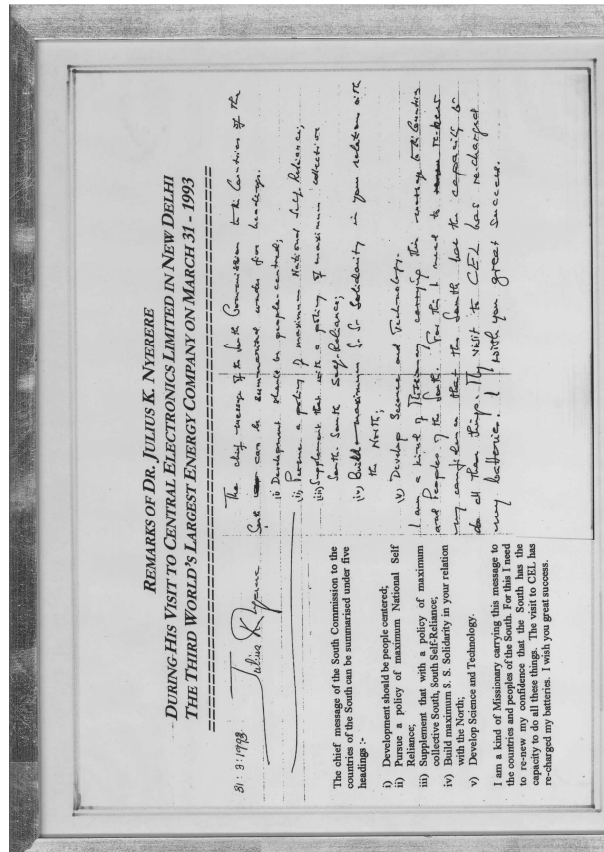 REMARKS OF DR. JULIUS K. NYERERE
DURING HIS VISIT TO CENTRAL ELECTRONICS LIMITED IN NEW DELHI
THE THIRD WORLD'S LARGEST ENERGY COMPANY ON MARCH 31 - 1993
31:3:1993
Julius K Nyerere
The chief message of the South Commission to the
countries of the South can be summarised under five
headings :-
i) Development should be people centered;
ii) Pursue a policy of maximum National Self
Reliance;
iii) Supplement that with a policy of maximum
collective South, South Self-Reliance;
iv) Build maximum S. S. Solidarity in your relation
with the North;
v) Develop Science and Technology.
I am a kind of Missionary carrying this message to
the countries and peoples of the South. For this I need
to re-new my confidence that the South has the
capacity to do all these things. The visit to CEL has
re-charged my batteries. I wish you great success.
The chief message of the South Commission to the Countries of the
South can be summarised under five headings.
(i) Development should be people-centred;
(ii) Pursue a policy of maximum National Self-Reliance;
(iii) Supplement that with a policy of maximum collective
South-South Self-Reliance;
(iv) Build maximum S.S. Solidarity in your relation with
the North;
(v) Develop Science and Technology.
I am a kind of Missionary carrying this message to the Countries
and Peoples of the South. For this I need to
my confidence that the South has the capacity to
do all these things. My visit to CEL has recharged
my batteries. I wish you great success.